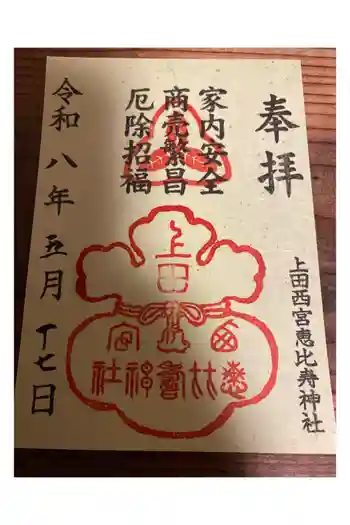 奉拝
上田西宮恵比寿神社
家内安全
商売繁昌
厄除招福
上田
西宮
恵比寿神社
令和八年五月十七日